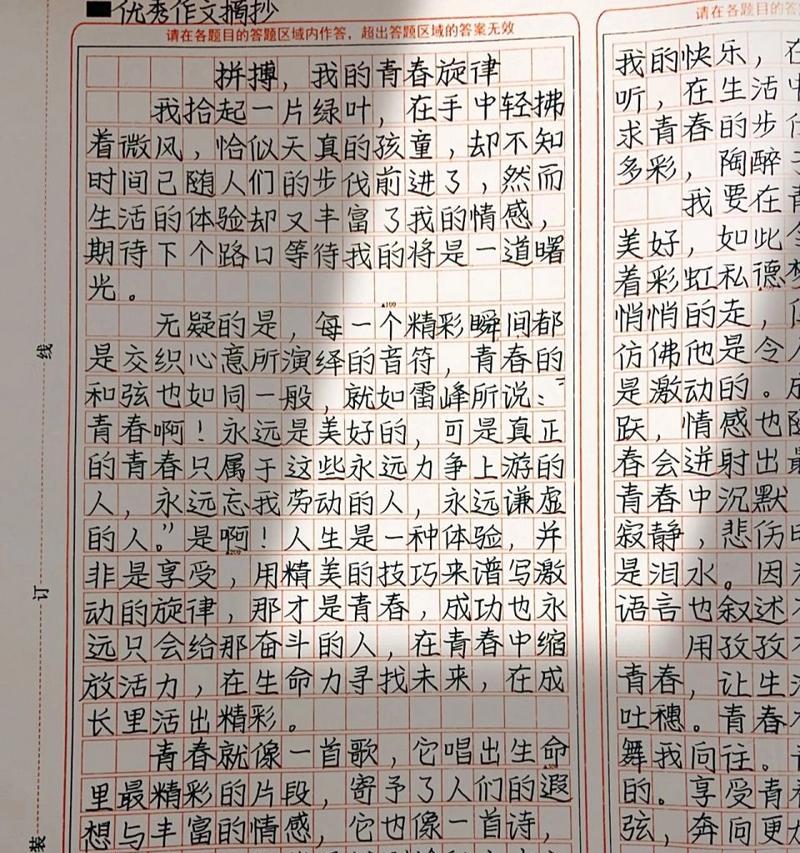 优秀作文摘抄
请在各题目的答题区域内作答，超出答题区域的答案无效
拼搏，我的青春旋律
我拾起一片绿叶，在手中轻拂
着微风，恰似天真的孩童，却不知
时间已随人们的步伐前进了，然而
生活的体验却又丰富了我的情感，
期待下个路口等待我的将是一道曙
光。
无疑的是，每一个精彩瞬间都
是交织心意所演绎的音符，青春的
和弦也如同一般，就如雷峰所说："
青春啊！永远是美好的，可是真正
的青春只属于这些永远力争上游的
人，永远忘我劳动的人，永远谦虚
的人。"是啊！人生是一种体验，并
非是享受，用精美的技巧来谱写激
动的旋律，那才是青春，成功也永
远只会给那奋斗的人，在青春中缩
放活力，在生命力寻找未来，在成
长里活出精彩。
青春就像一首歌，它唱出生命
里最精彩的片段，寄予了人们的遐
想与丰富的情感，它也像一首诗，
线
订
装
请在各题目的答
我的快乐，在
听，在生活中
求青春的步伐
多彩，陶醉
我要在青
美好，如此
着彩虹私德梦
悄悄的走，
仿佛他是令人
是激动的。成
跃，情感也随
春会迸射出最
青春中沉默
寂寞静，悲伤
是泪水。因
语言也叙述不
用孜孜不
青春，让生活
吐穗。青春
舞我向往。
的。享受青春
弦，奔向更